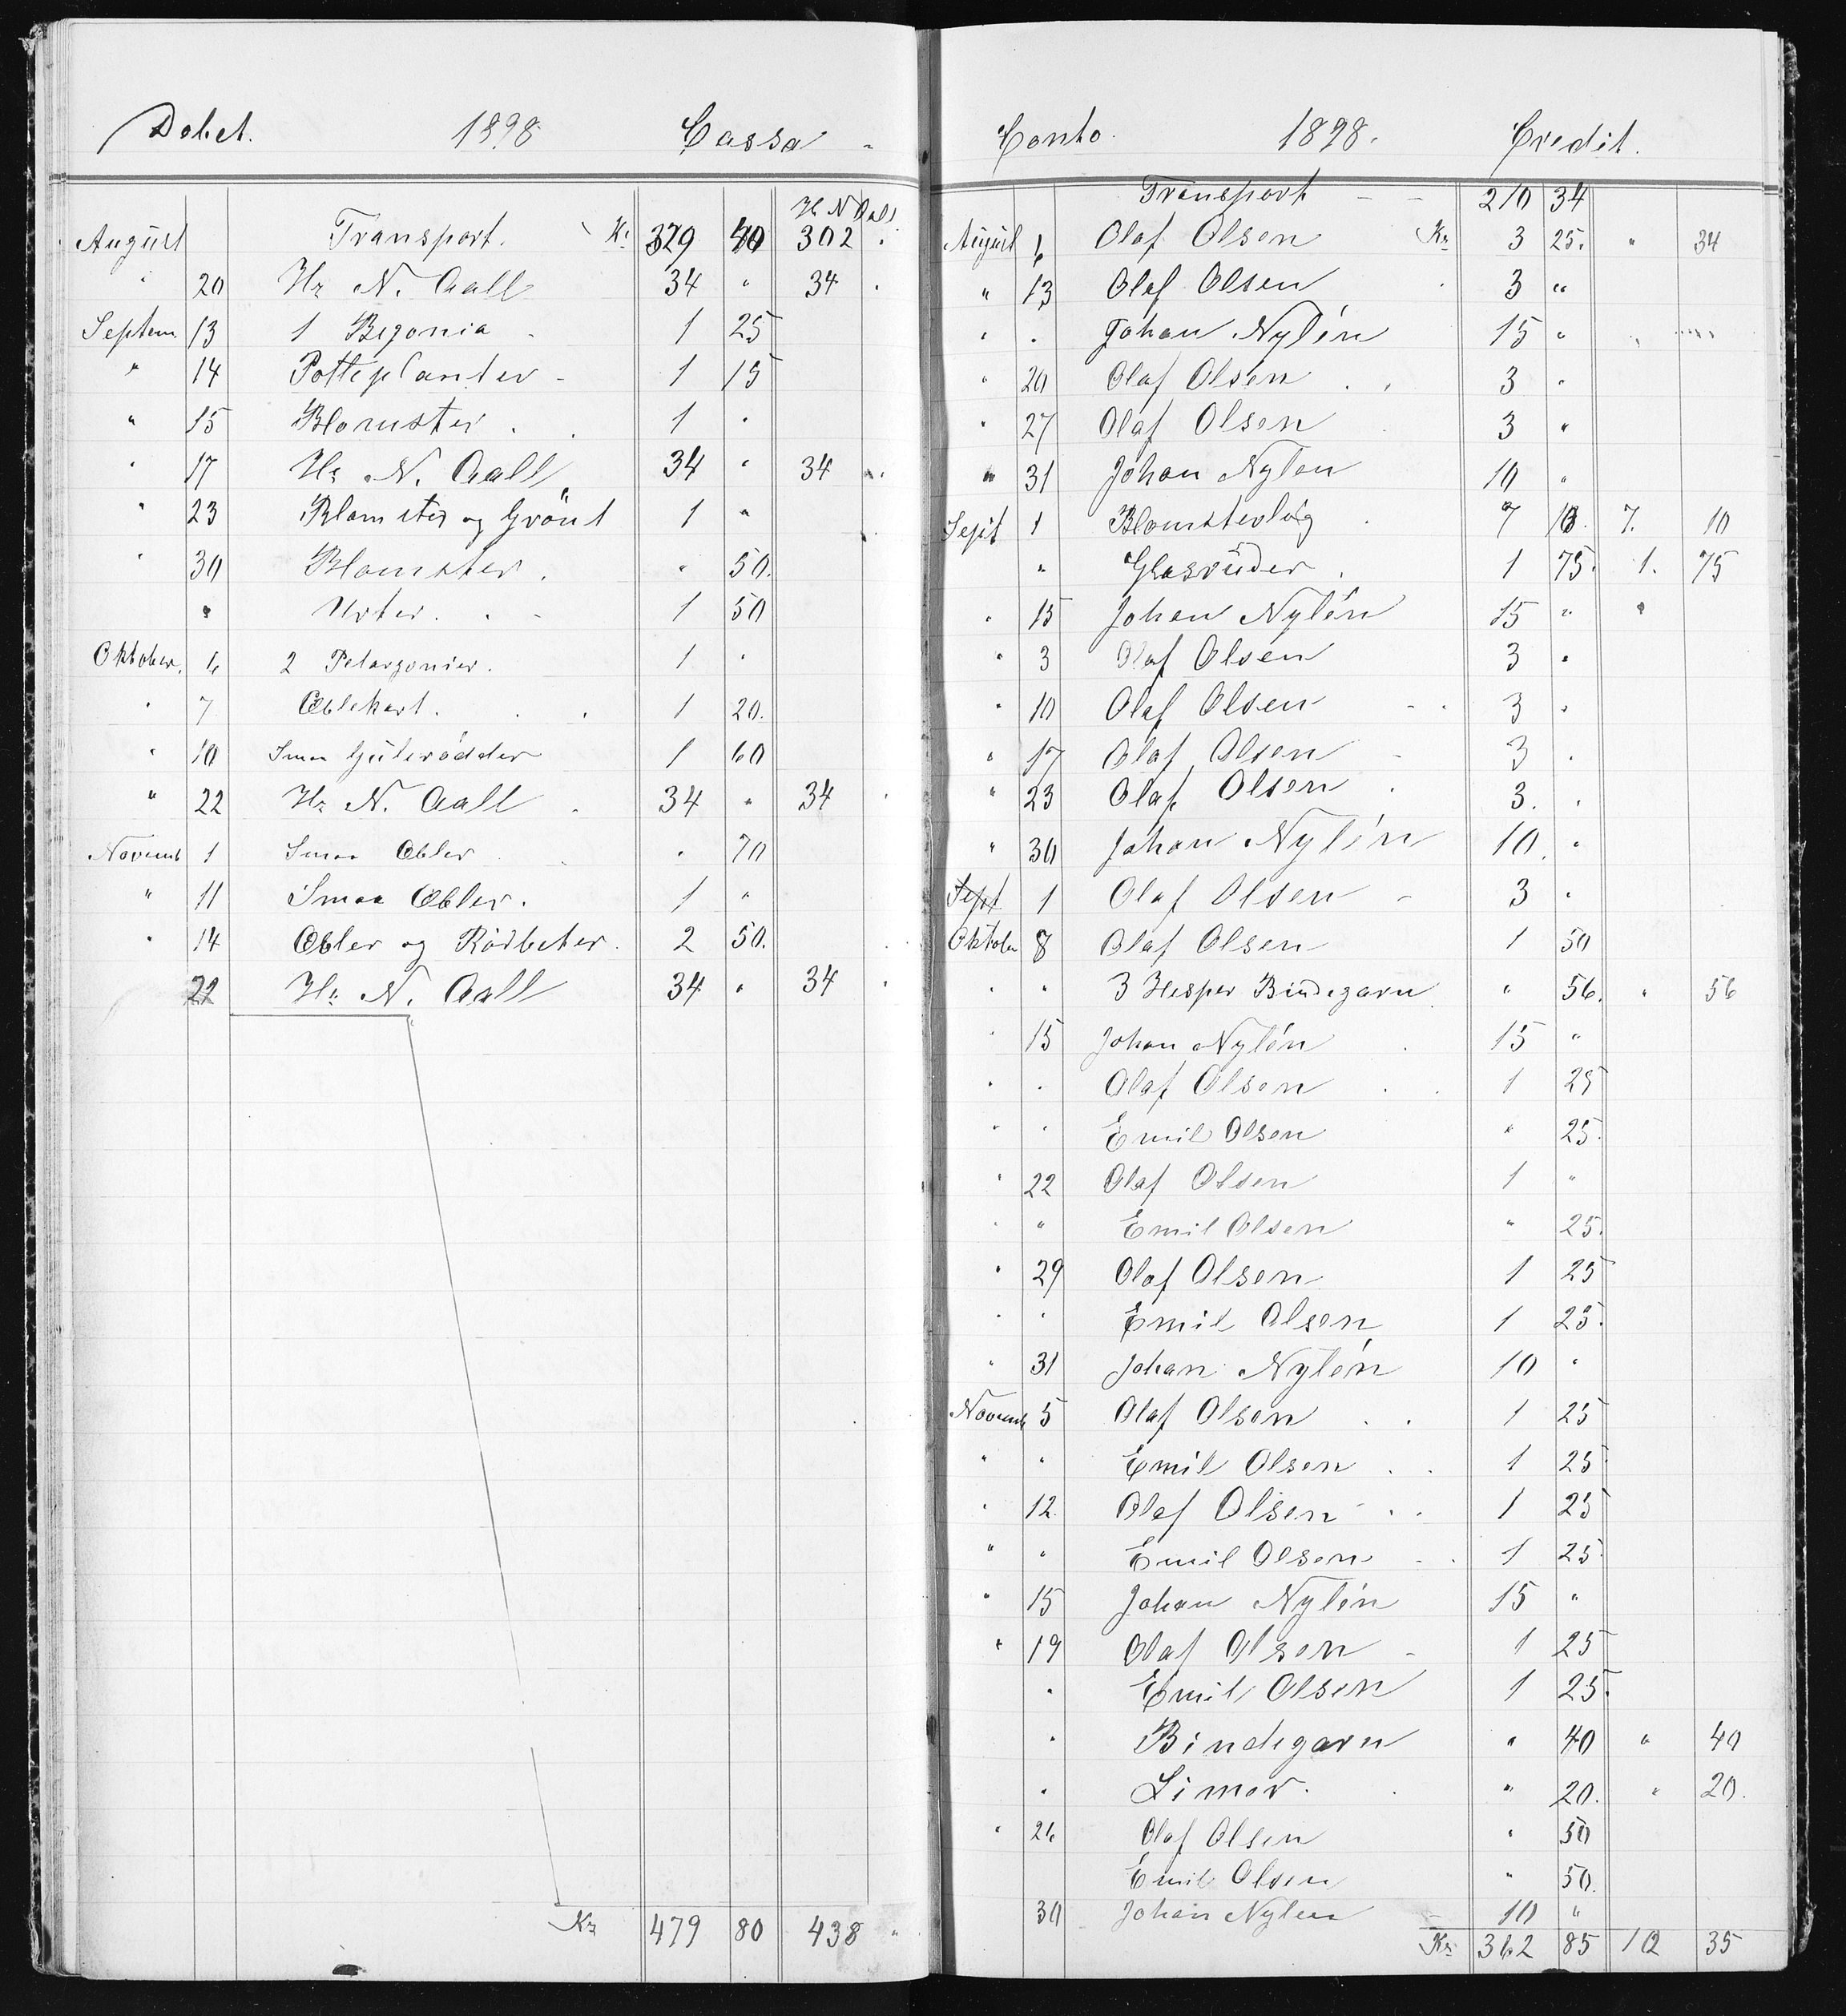 Debet. 1898 Cassa
H. N. Aall
August Transport. Kr 329 40 302
" 20 Hr N. Aall 34 " 34
Septem. 13 1 Begonia 1 25
" 14 Potteplanter 1 15
" 15 Blomster 1 "
" 17 Hr N. Aall 34 " 34
" 23 Blomster og Grönt 1 "
" 30 Blomster. " 50.
" Urter. 1 50
Oktober. 6 2 Pelargonier. 1 "
" 7 Æblekart. 1 20.
" 10 Smaa Gulerødder 1 60
" 22 Hr N. Aall 34 " 34
Novemb 1 Smaa Æbler " 70
" 11 Smaa Æbler. 1 "
" 14 Æbler og Rödbeter. 2 50.
22 Hr N. Aall 34 " 34
Kr 479 80 438 "
Conto. 1898. Credit.
Transport 210 34
August 6 Olaf Olsen Kr 3 25. " 34
" 13 Olaf Olsen 3 "
" " Johan Nylén 15 "
" 20 Olaf Olsen 3 "
" 27 Olaf Olsen 3 "
" 31 Johan Nylen 10 "
Sept 1 Blomsterløg 7 10. 7. 10
" Glasruder 1 75. 1. 75
" 15 Johan Nylén 15 " "
" 3 Olaf Olsen 3 "
" 10 Olaf Olsen 3 "
" 17 Olaf Olsen 3 "
" 23 Olaf Olsen 3. "
" 30 Johan Nylén 10. "
Sept 1 Olaf Olsen 3 "
Oktober 8 Olaf Olsen 1 50
" " 3 Hesper Bindegarn " 56. " 56
" 15 Johan Nylén 15 "
" " Olaf Olsen 1 25
" " Emil Olsen " 25.
" 22 Olaf Olsen 1 "
" " Emil Olsen " 25.
" 29 Olaf Olsen 1 25
" " Emil Olsen 1 25.
" 31 Johan Nylén 10 "
Novemb 5 Olaf Olsen 1 25
" " Emil Olsen 1 25
" 12 Olaf Olsen 1 25
" " Emil Olsen 1 25
" 15 Johan Nylén 15 "
" 19 Olaf Olsen 1 25
" Emil Olsen 1 25.
" Bindegarn " 40 " 40
" Limer. " 20. " 20.
" 26 Olaf Olsen " 50
Emil Olsen " 50.
30 Johan Nylen 10 "
Kr 362 85 10 35